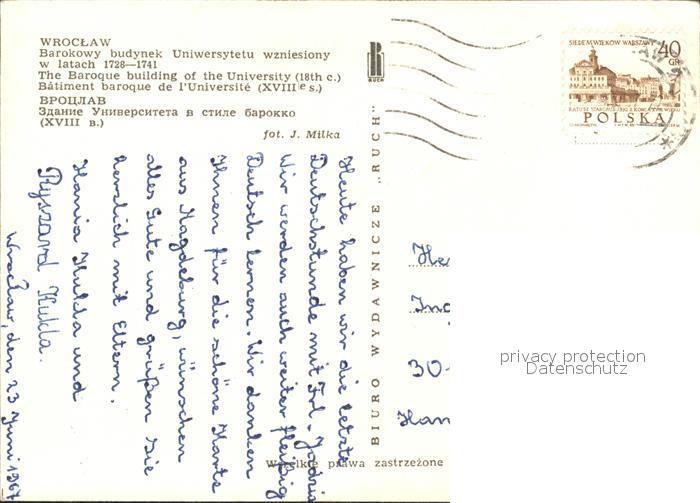 WROCŁAW
Barokowy budynek Uniwersytetu wzniesiony
w latach 1728—1741
The Baroque building of the University (18th c.)
Bâtiment baroque de l'Université (XVIIIe s.)
ВРОЦЛАВ
Здание Университета в стиле барокко
(XVIII в.)
fot. J. Miłka
RUCH
BIURO WYDAWNICZE „RUCH"
Wszelkie prawa zastrzeżone
SIEDEM WIEKÓW WARSZAWY
40
GR
POLSKA
Heute haben wir die letzte
Deutschstunde mit Frl. Jadzia
Wir werden auch weiter fleißig
Deutsch lernen. Wir danken
Ihnen für die schöne Karte
aus Magdeburg, wünschen
alles Gute und grüßen Sie
herzlich mit Eltern.
Hania Kukla und
Ryszard Kukla.
Wrocław, den 23 Juni 1967
He
In
30
Han
privacy protection
Datenschutz